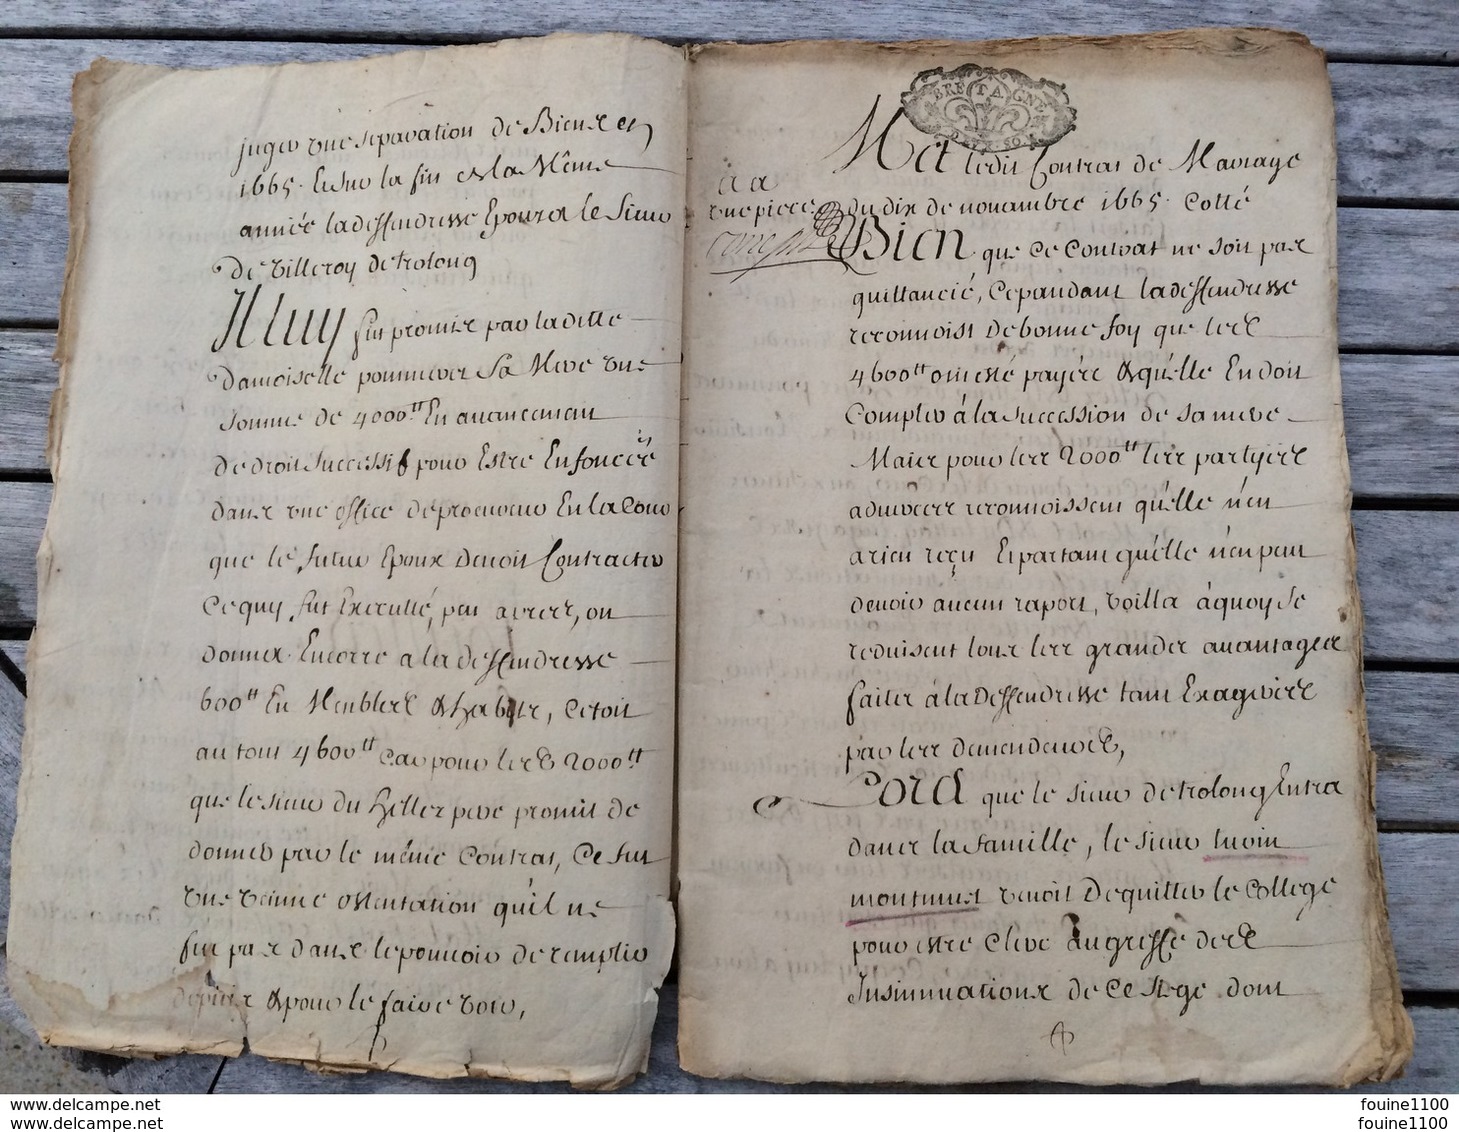 juger une separation de Biens en
1665. Et sur la fin de la Même
année la deffendresse Epousa le Sieur
de Villeroy de trolong
Il luy fut promis par la ditte
damoiselle pommerer Sa Mere une
somme de 4000tt En auancement
de droit successif pour Estre Enfoncée
dans une office de procureur En la Cour
que le futur Epoux deuoit Contracter
Ce quy fut Executté, peu aprés, on
donna Encorre a la deffendresse
600tt En Meubles & habits, C'etoit
au tout 4600tt Car pour les 2000tt
que le sieur du hiller pere promit de
donner par le même Contrat, Ce fut
une vainne ostentation qu'il ne
fut pas dans le pouuoir de remplir
depuis & pour le faire voir,
BRETAGNE
DEUX SO
Met ledit Contrat de Mariage
du dix de nouambre 1665. Cotté
une piece
Bien que ce Contrat ne soit pas
quittancé, Cependant la deffendresse
reconnoist de bonne foy que les
4600tt ont esté payés & qu'elle En doit
Compter à la succession de sa mere
Mais pour les 2000tt les partyes
aduerses reconnoissent qu'elle n'en
a rien reçu Et partant qu'elle n'en peut
deuoir aucun raport, voilla à quoy se
reduisent tous les grandes auantages
faites à la deffendresse tant Exagerés
par les demendeurs,
Lors que le sieur de trolong Entra
dans la famille, le sieur
venoit de quitter le College
pour estre Clerc au greffe des
Insinnuations de Ce siege dont
fouine1100
fouine1100
delcampe.net
delcampe.net